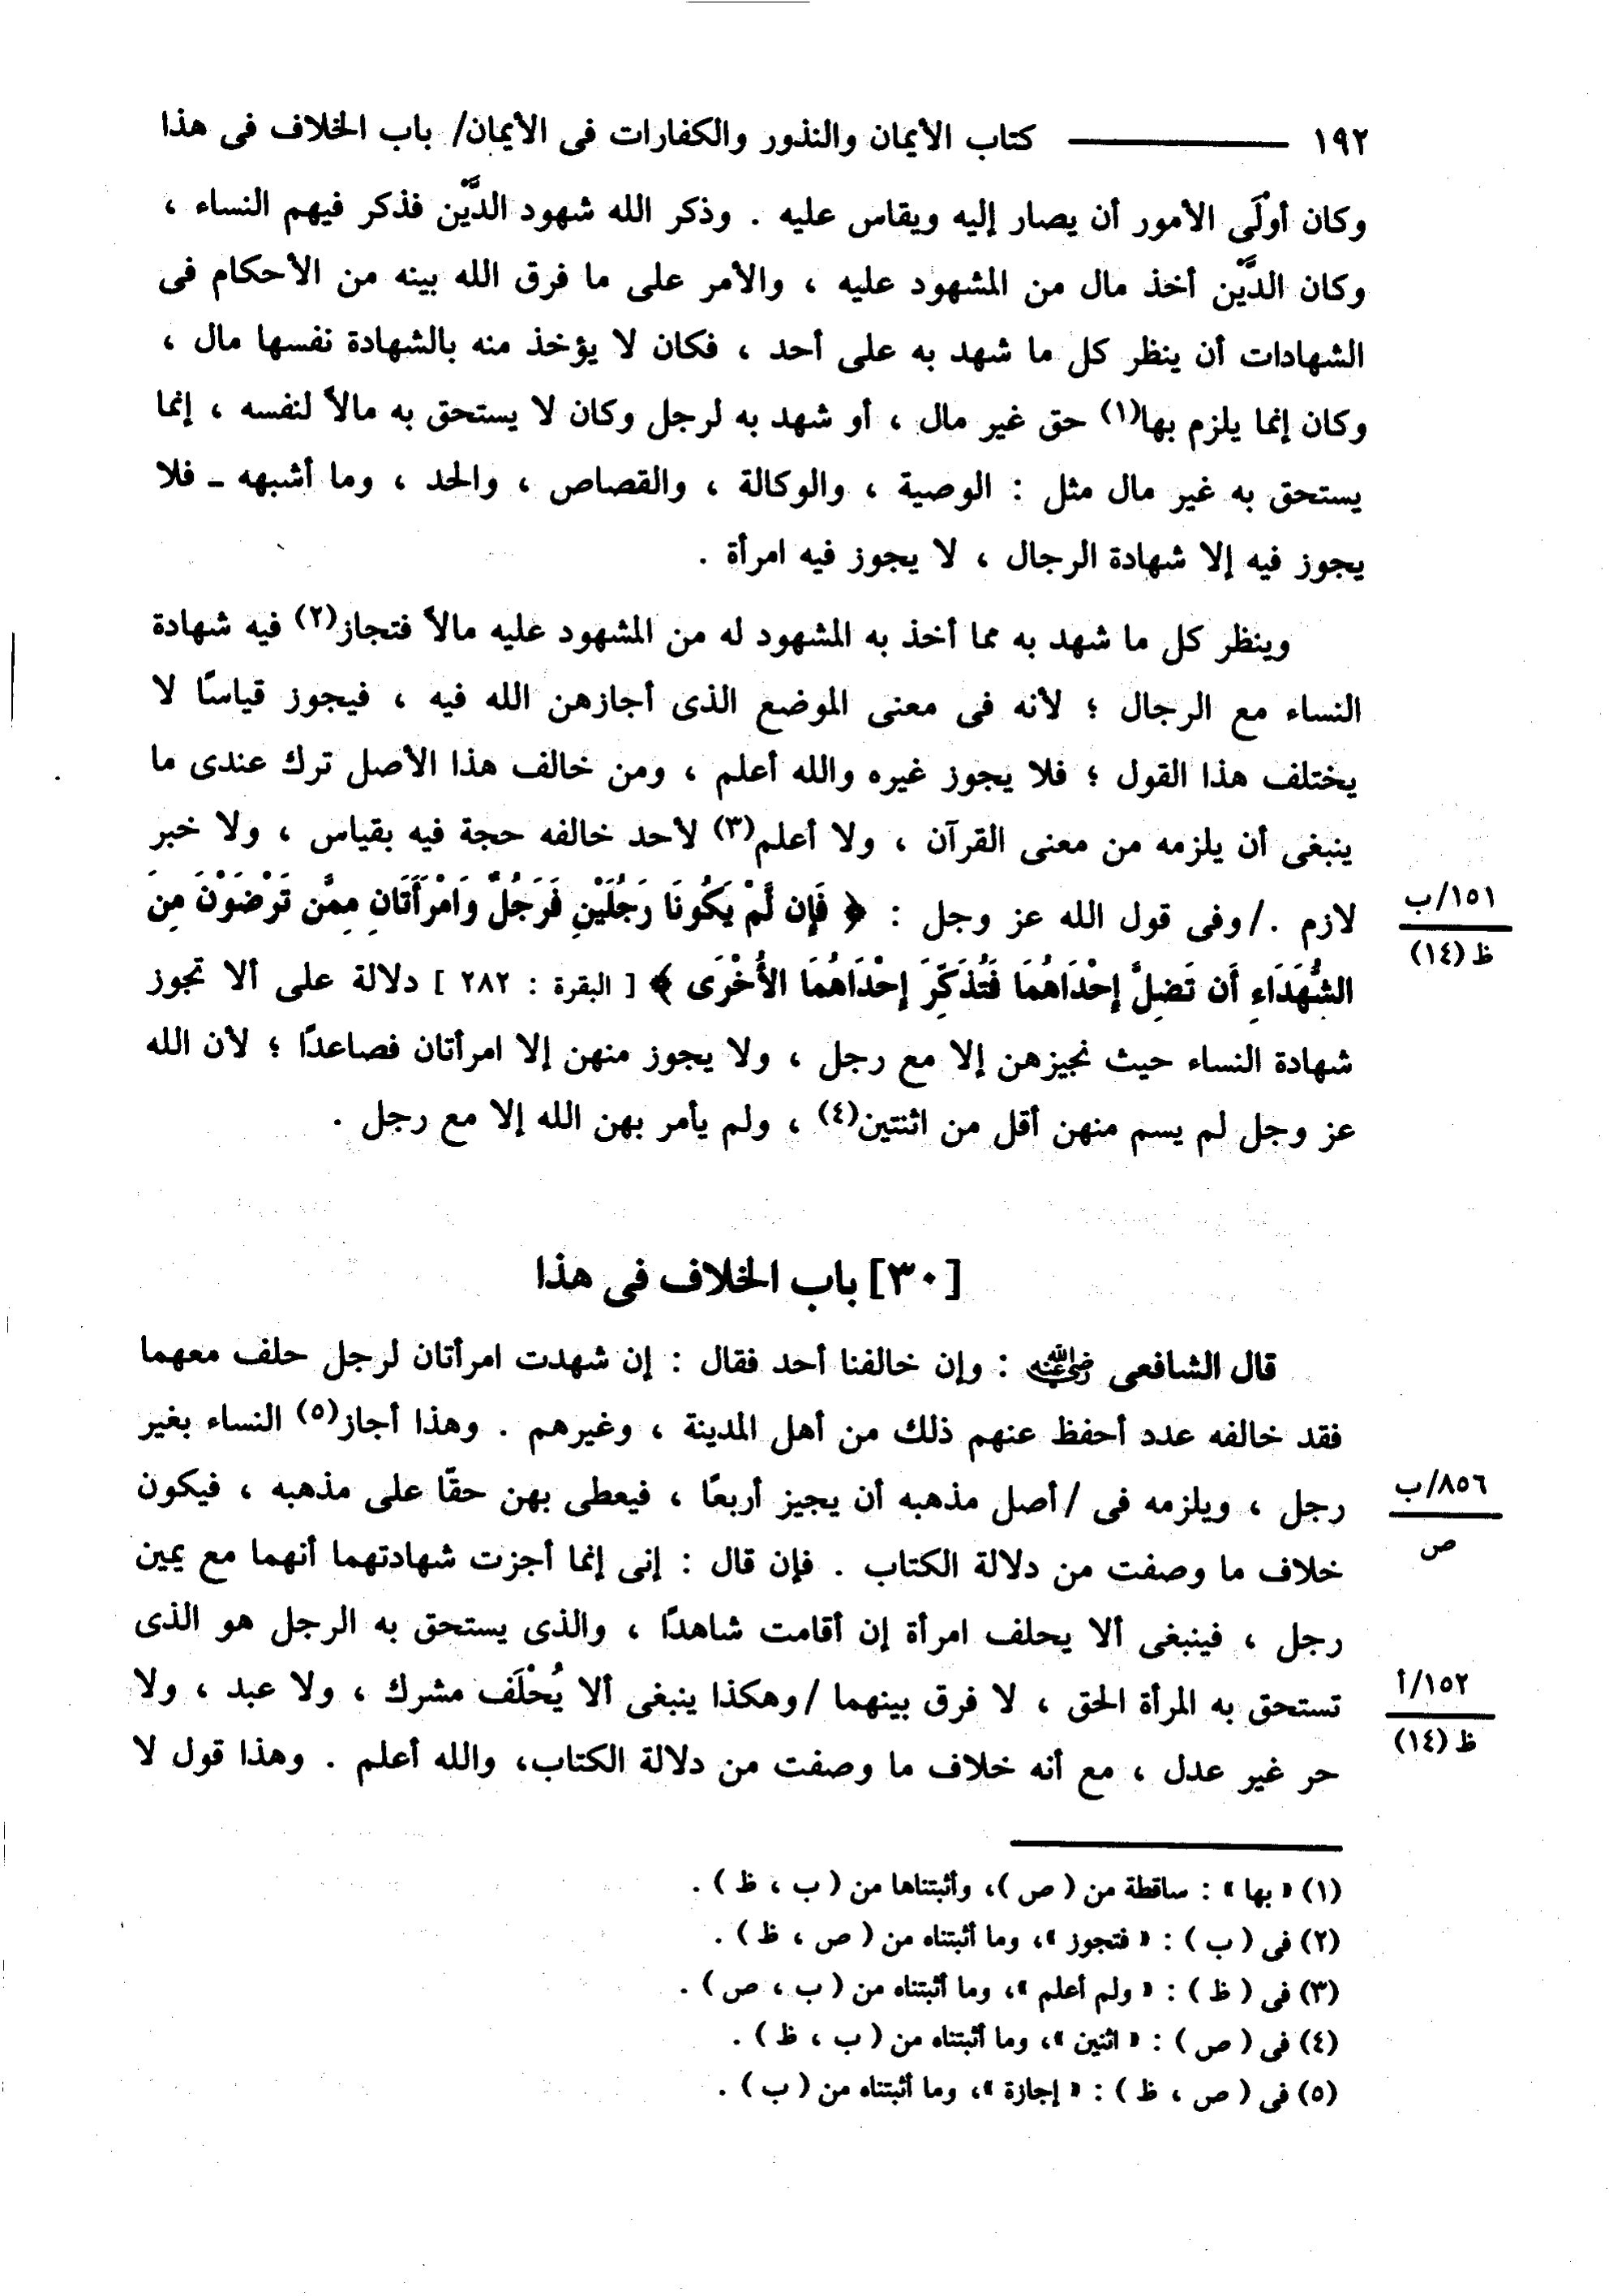 ١٩٢ ــــــــــــــ كتاب الأيمان والنذور والكفارات فى الأيمان/ باب الخلاف فى هذا
وكان أولَى الأمور أن يصار إليه ويقاس عليه . وذكر الله شهود الدَّيْن فذكر فيهم النساء ،
وكان الدَّيْن أخذ مال من المشهود عليه ، والأمر على ما فرق الله بينه من الأحكام فى
الشهادات أن ينظر كل ما شهد به على أحد ، فكان لا يؤخذ منه بالشهادة نفسها مال ،
وكان إنما يلزم بها(١) حق غير مال ، أو شهد به لرجل وكان لا يستحق به مالاً لنفسه ، إنما
يستحق به غير مال مثل : الوصية ، والوكالة ، والقصاص ، والحد ، وما أشبهه ـ فلا
يجوز فيه إلا شهادة الرجال ، لا يجوز فيه امرأة .
وينظر كل ما شهد به مما أخذ به المشهود له من المشهود عليه مالاً فتجاز(٢) فيه شهادة
النساء مع الرجال ؛ لأنه فى معنى الموضع الذى أجازهن الله فيه ، فيجوز قياسًا لا
يختلف هذا القول ؛ فلا يجوز غيره والله أعلم ، ومن خالف هذا الأصل ترك عندى ما
ينبغى أن يلزمه من معنى القرآن ، ولا أعلم(٣) لأحد خالفه حجة فيه بقياس ، ولا خبر
١٥١/ب
ظ (١٤)
لازم ./وفى قول الله عز وجل : ﴿ فَإِن لَّمْ يَكُونَا رَجُلَيْنِ فَرَجُلٌ وَامْرَأَتَانِ مِمَّن تَرْضَوْنَ مِنَ
الشُّهَدَاءِ أَن تَضِلَّ إِحْدَاهُمَا فَتُذَكِّرَ إِحْدَاهُمَا الأُخْرَى ﴾ [ البقرة : ٢٨٢ ] دلالة على ألا تجوز
شهادة النساء حيث نجيزهن إلا مع رجل ، ولا يجوز منهن إلا امرأتان فصاعدًا ؛ لأن الله
عز وجل لم يسم منهن أقل من اثنتين(٤) ، ولم يأمر بهن الله إلا مع رجل .
[٣٠] باب الخلاف فى هذا
قال الشافعى رضي الله عنه : وإن خالفنا أحد فقال : إن شهدت امرأتان لرجل حلف معهما
فقد خالفه عدد أحفظ عنهم ذلك من أهل المدينة ، وغيرهم . وهذا أجاز(٥) النساء بغير
٨٥٦/ب
ص
رجل ، ويلزمه فى /أصل مذهبه أن يجيز أربعًا ، فيعطى بهن حقًا على مذهبه ، فيكون
خلاف ما وصفت من دلالة الكتاب . فإن قال : إنى إنما أجزت شهادتهما أنهما مع يمين
رجل ، فينبغى ألا يحلف امرأة إن أقامت شاهدًا ، والذى يستحق به الرجل هو الذى
١٥٢/أ
ظ (١٤)
تستحق به المرأة الحق ، لا فرق بينهما /وهكذا ينبغى ألا يُحْلَف مشرك ، ولا عبد ، ولا
حر غير عدل ، مع أنه خلاف ما وصفت من دلالة الكتاب، والله أعلم . وهذا قول لا
(١) « بها » : ساقطة من ( ص )، وأثبتناها من ( ب ، ظ ) .
(٢) فى ( ب ) : « فتجوز »، وما أثبتناه من ( ص ، ظ ) .
(٣) فى ( ظ ) : « ولم أعلم »، وما أثبتناه من ( ب ، ص ) .
(٤) فى ( ص ) : « اثنين »، وما أثبتناه من ( ب ، ظ ) .
(٥) فى ( ص ، ظ ) : « إجازة »، وما أثبتناه من ( ب ) .